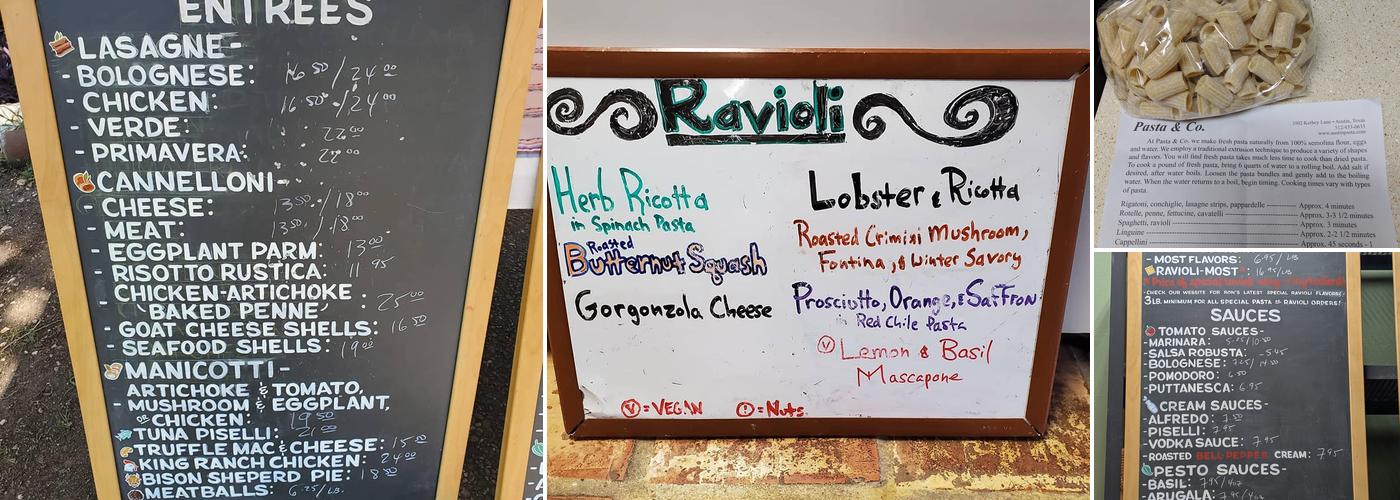 ENTREES
LASAGNE-
- BOLOGNESE: 16.50 / 24.00
- CHICKEN: 16.50 / 24.00
- VERDE: 22.00
- PRIMAVERA: 22.00
CANNELLONI-
- CHEESE: 13.50 / 18.00
- MEAT: 13.50 / 18.00
- EGGPLANT PARM: 13.00
- RISOTTO RUSTICA: 11.95
CHICKEN-ARTICHOKE
- 'BAKED PENNE' 25.00
- GOAT CHEESE SHELLS: 16.50
- SEAFOOD SHELLS: 19.00
MANICOTTI-
ARTICHOKE & TOMATO,
- MUSHROOM & EGGPLANT,
CHICKEN: 19.50
TUNA PISELLI: 21.00
TRUFFLE MAC & CHEESE: 15.50
KING RANCH CHICKEN: 24.00
BISON SHEPERD PIE: 18.50
MEATBALLS: 6.25/LB.
Ravioli
Herb Ricotta
in Spinach Pasta
Roasted
Butternut Squash
Gorgonzola Cheese
Lobster & Ricotta
Roasted Crimini Mushroom,
Fontina, & Winter Savory
Prosciutto, Orange, & Saffron
in Red Chile Pasta
Ⓥ Lemon & Basil
Mascapone
Ⓥ = VEGAN ! = Nuts
Pasta & Co.
3902 Kerbey Lane • Austin, Texas
512/453-0633
www.austinpasta.com
At Pasta & Co. we make fresh pasta naturally from 100% semolina flour, eggs
and water. We employ a traditional extrusion technique to produce a variety of shapes
and flavors. You will find fresh pasta takes much less time to cook than dried pasta.
To cook a pound of fresh pasta, bring 6 quarts of water to a rolling boil. Add salt if
desired, after water boils. Loosen the pasta bundles and gently add to the boiling
water. When the water returns to a boil, begin timing. Cooking times vary with types
of pasta.
Rigatoni, conchiglie, lasagne strips, pappardelle Approx. 4 minutes
Rotelle, penne, fettucine, cavatelli Approx. 3-3 1/2 minutes
Spaghetti, ravioli Approx. 3 minutes
Linguine Approx. 2-2 1/2 minutes
Cappellini Approx. 45 seconds - 1
- MOST FLAVORS: 6.95/LB
RAVIOLI-MOST*: 16.95/LB
* Price of special ravioli vary
-CHECK OUR WEBSITE FOR RON'S LATEST SPECIAL RAVIOLI FLAVORS!
3 LB. MINIMUM FOR ALL SPECIAL PASTA & RAVIOLI ORDERS!
SAUCES
TOMATO SAUCES-
- MARINARA: 5.25/10.50
- SALSA ROBUSTA: 5.45
- BOLOGNESE: 7.25/14.50
- POMODORO: 6.50
- PUTTANESCA: 6.95
CREAM SAUCES-
- ALFREDO: 7.50
- PISELLI: 7.95
- VODKA SAUCE: 7.95
- ROASTED BELL PEPPER CREAM: 7.95
PESTO SAUCES-
- BASIL: 7.95/4oz
- ARUGALA: 7.95/4oz